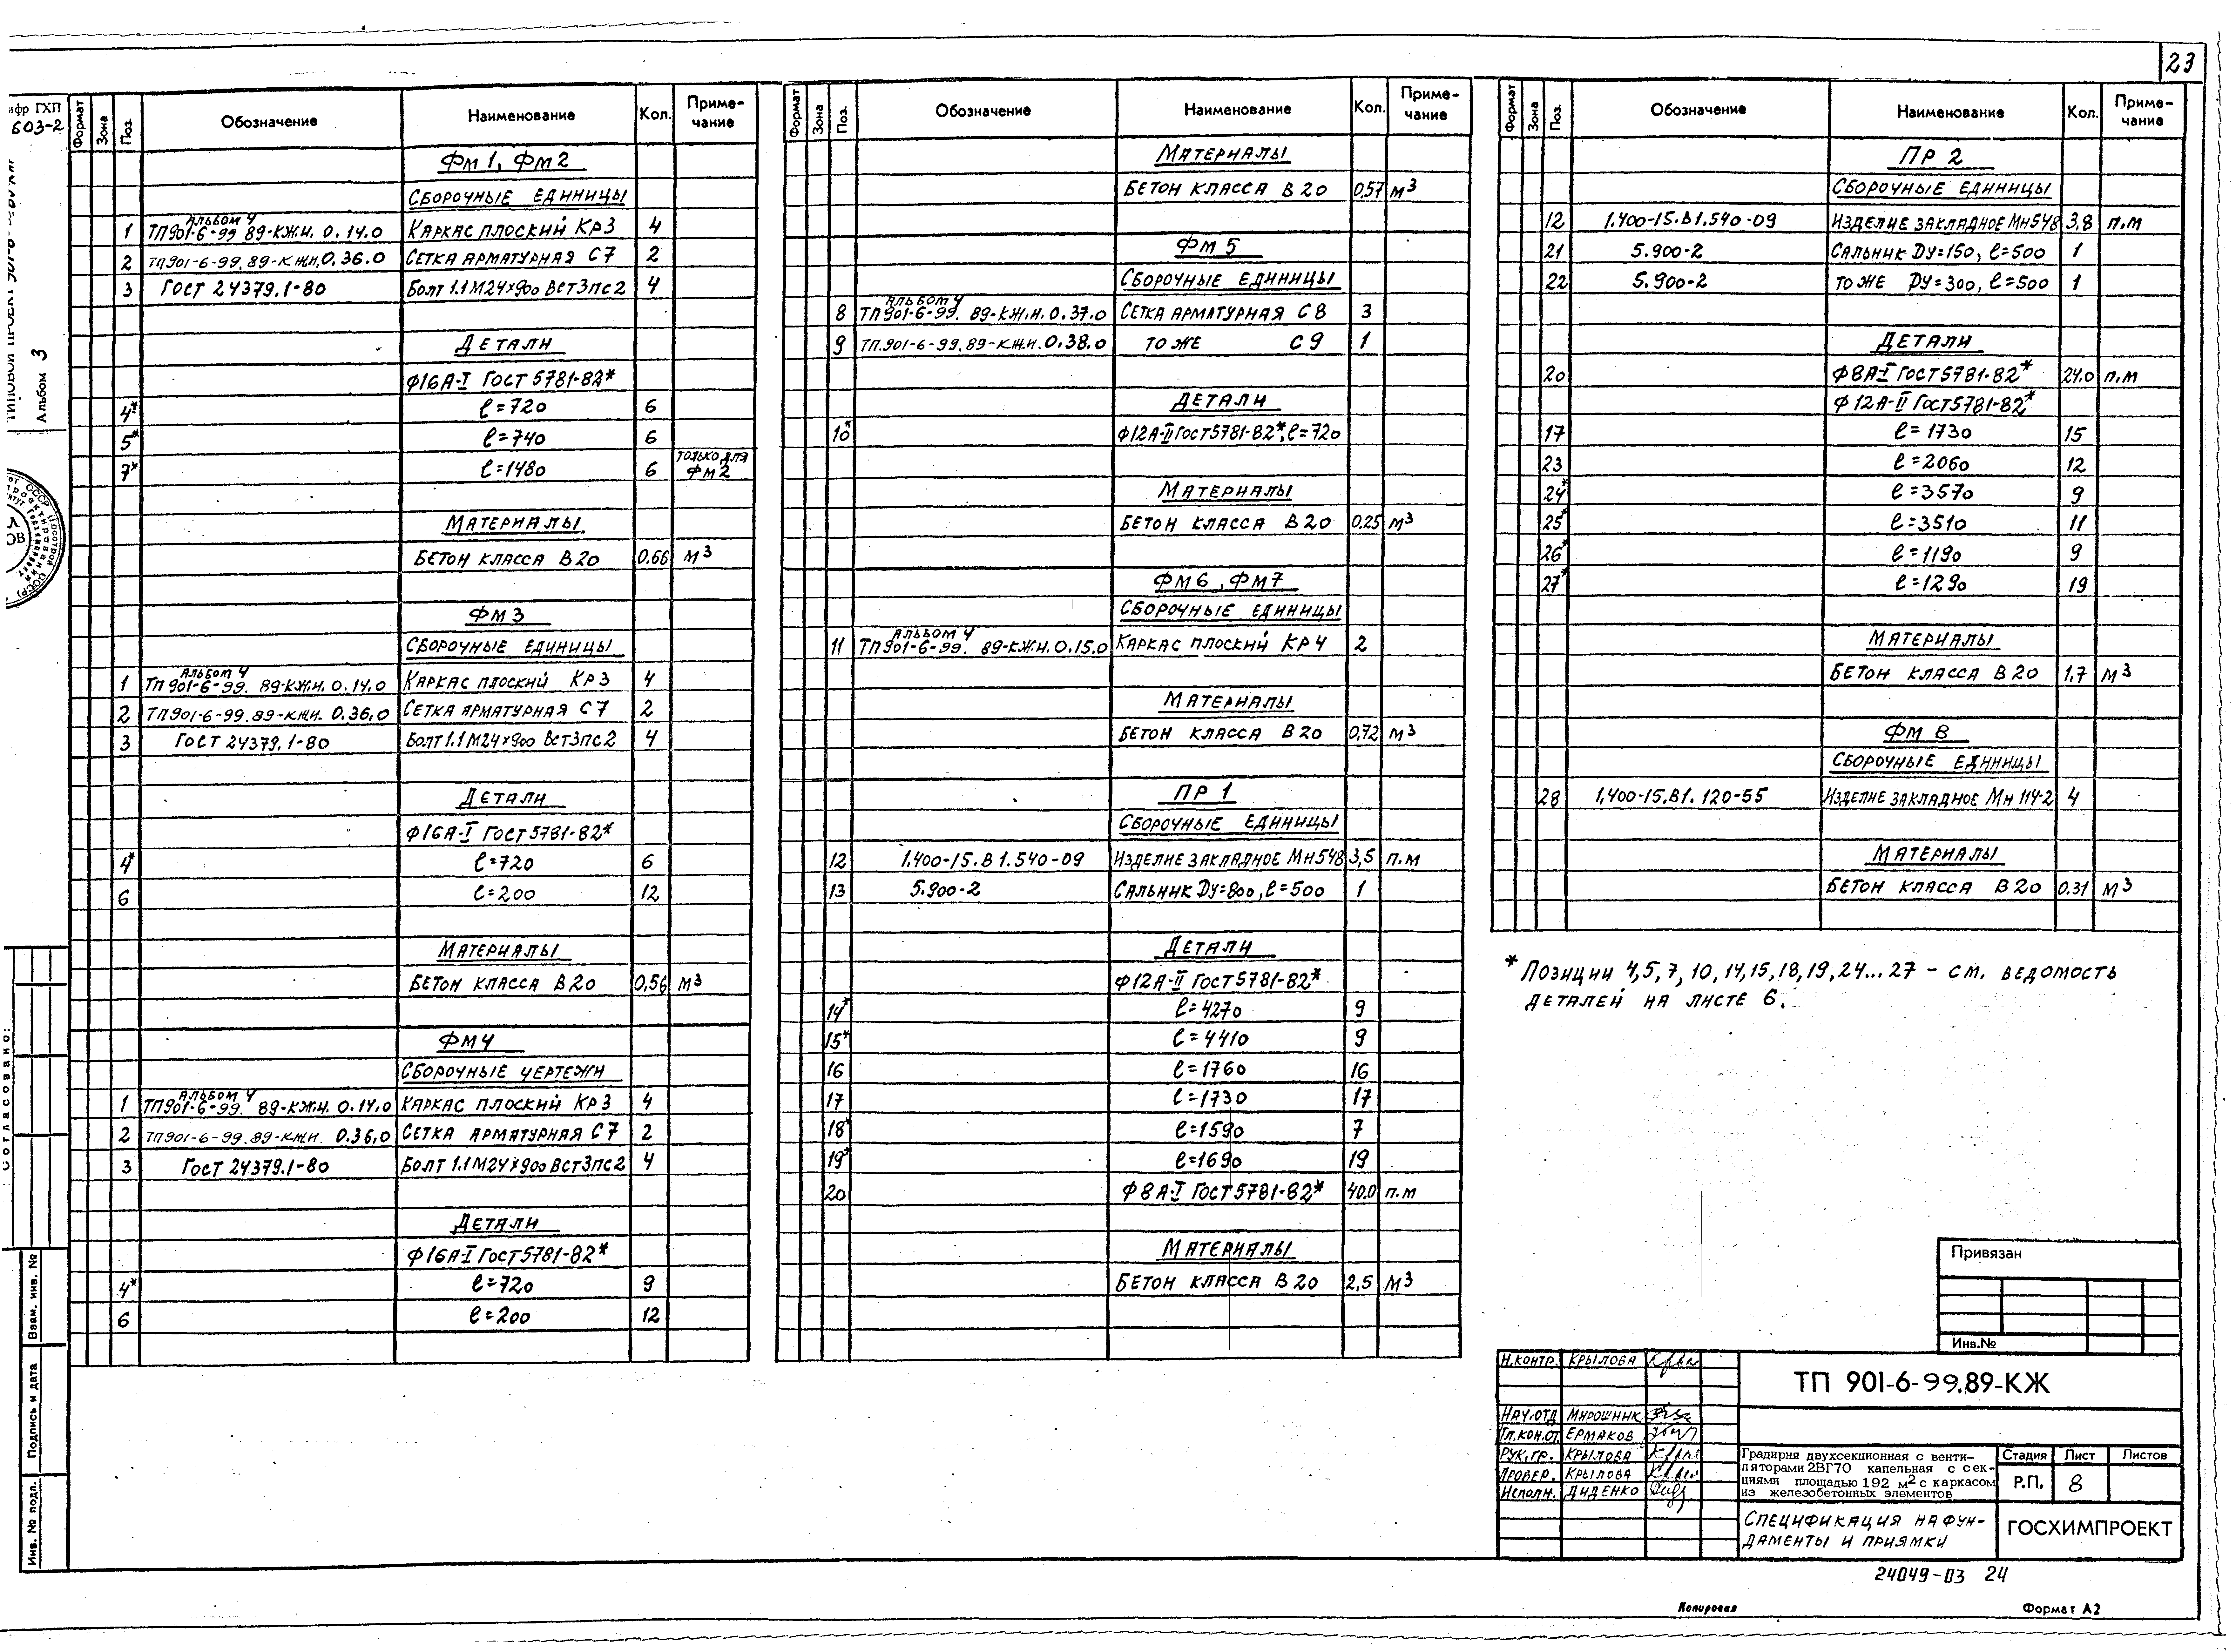 23
ифр ГХП
603-2
Альбом 3
Согласовано:
Взам. инв. №
Подпись и дата
Инв. № подл.
Формат Зона Поз. Обозначение Наименование Кол. Приме-чание
Фм 1, Фм 2
Сборочные единицы
1 Альбом 4 ТП901-6-99.89-КЖ.И. 0.14.0 Каркас плоский Кр3 4
2 ТП901-6-99.89-КЖ.И. 0.36.0 Сетка арматурная С7 2
3 Гост 24379.1-80 Болт 1.1М24×900 Вст3пс2 4
Детали
Ф16А-I Гост 5781-82*
4* ℓ=720 6
5* ℓ=740 6
7* ℓ=1480 6 только для Фм2
Материалы
Бетон класса В20 0,66 м3
Фм3
Сборочные единицы
1 Альбом 4 ТП901-6-99.89-КЖ.И. 0.14.0 Каркас плоский Кр3 4
2 ТП901-6-99.89-КЖ.И. 0.36.0 Сетка арматурная С7 2
3 Гост 24379.1-80 Болт 1.1М24×900 Вст3пс2 4
Детали
Ф16А-I Гост 5781-82*
4* ℓ=720 6
6 ℓ=200 12
Материалы
Бетон класса В20 0,56 м3
Фм4
Сборочные чертежи
1 Альбом 4 ТП901-6-99.89-КЖ.И. 0.14.0 Каркас плоский Кр3 4
2 ТП901-6-99.89-КЖ.И. 0.36.0 Сетка арматурная С7 2
3 Гост 24379.1-80 Болт 1.1М24×900 Вст3пс2 4
Детали
Ф16А-I Гост 5781-82*
4* ℓ=720 9
6 ℓ=200 12
Формат Зона Поз. Обозначение Наименование Кол. Приме-чание
Материалы
Бетон класса В20 0,57 м3
Фм 5
Сборочные единицы
8 Альбом 4 ТП901-6-99.89-КЖ.И. 0.37.0 Сетка арматурная С8 3
9 ТП.901-6-99.89-КЖ.И. 0.38.0 То же С9 1
Детали
10* Ф12А-II Гост 5781-82*, ℓ=720
Материалы
Бетон класса В20 0,25 м3
Фм6, Фм7
Сборочные единицы
11 Альбом 4 ТП901-6-99.89-КЖ.И. 0.15.0 Каркас плоский КР4 2
Материалы
Бетон класса В20 0,72 м3
ПР 1
Сборочные единицы
12 1.400-15.В1.540-09 Изделие закладное Мн548 3,5 п.м
13 5.900-2 Сальник Ду=800, ℓ=500 1
Детали
Ф12А-II Гост 5781-82*
14* ℓ=4270 9
15* ℓ=4410 9
16 ℓ=1760 16
17 ℓ=1730 17
18* ℓ=1590 7
19* ℓ=1690 19
20 Ф8А-I Гост 5781-82* 40.0 п.м
Материалы
Бетон класса В20 2,5 м3
Формат Зона Поз. Обозначение Наименование Кол. Приме-чание
ПР 2
Сборочные единицы
12 1.400-15.В1.540-09 Изделие закладное Мн548 3,8 п.м
21 5.900-2 Сальник Ду=150, ℓ=500 1
22 5.900-2 То же Ду=300, ℓ=500 1
Детали
20 Ф8А-I Гост 5781-82* 24.0 п.м
Ф12А-II Гост 5781-82*
17 ℓ=1730 15
23 ℓ=2060 12
24* ℓ=3570 9
25* ℓ=3510 11
26* ℓ=1190 9
27* ℓ=1290 19
Материалы
Бетон класса В20 1,7 м3
Фм 8
Сборочные единицы
28 1.400-15.В1.120-55 Изделие закладное Мн 114-2 4
Материалы
Бетон класса В20 0.31 м3
* Позиции 4,5,7,10,14,15,18,19,24...27 - см. ведомость
деталей на листе 6.
Привязан
Инв.№
Н.контр. Крылова
Нач.отд Мирошник
Гл.кон.от. Ермаков
Рук.гр. Крылова
Провер. Крылова
Исполн. Диденко
ТП 901-6-99.89-КЖ
Градирня двухсекционная с венти-
ляторами 2ВГ70 капельная с сек-
циями площадью 192 м2 с каркасом
из железобетонных элементов
Стадия Лист Листов
Р.П. 8
Спецификация на фун-
даменты и приямки
ГОСХИМПРОЕКТ
24049-03 24
Копировал
Формат А2